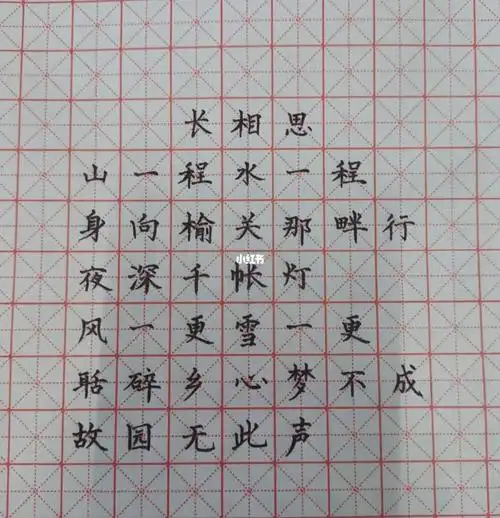 长相思
山一程水一程
身向榆关那畔行
夜深千帐灯
小红书
风一更雪一更
聒碎乡心梦不成
故园无此声